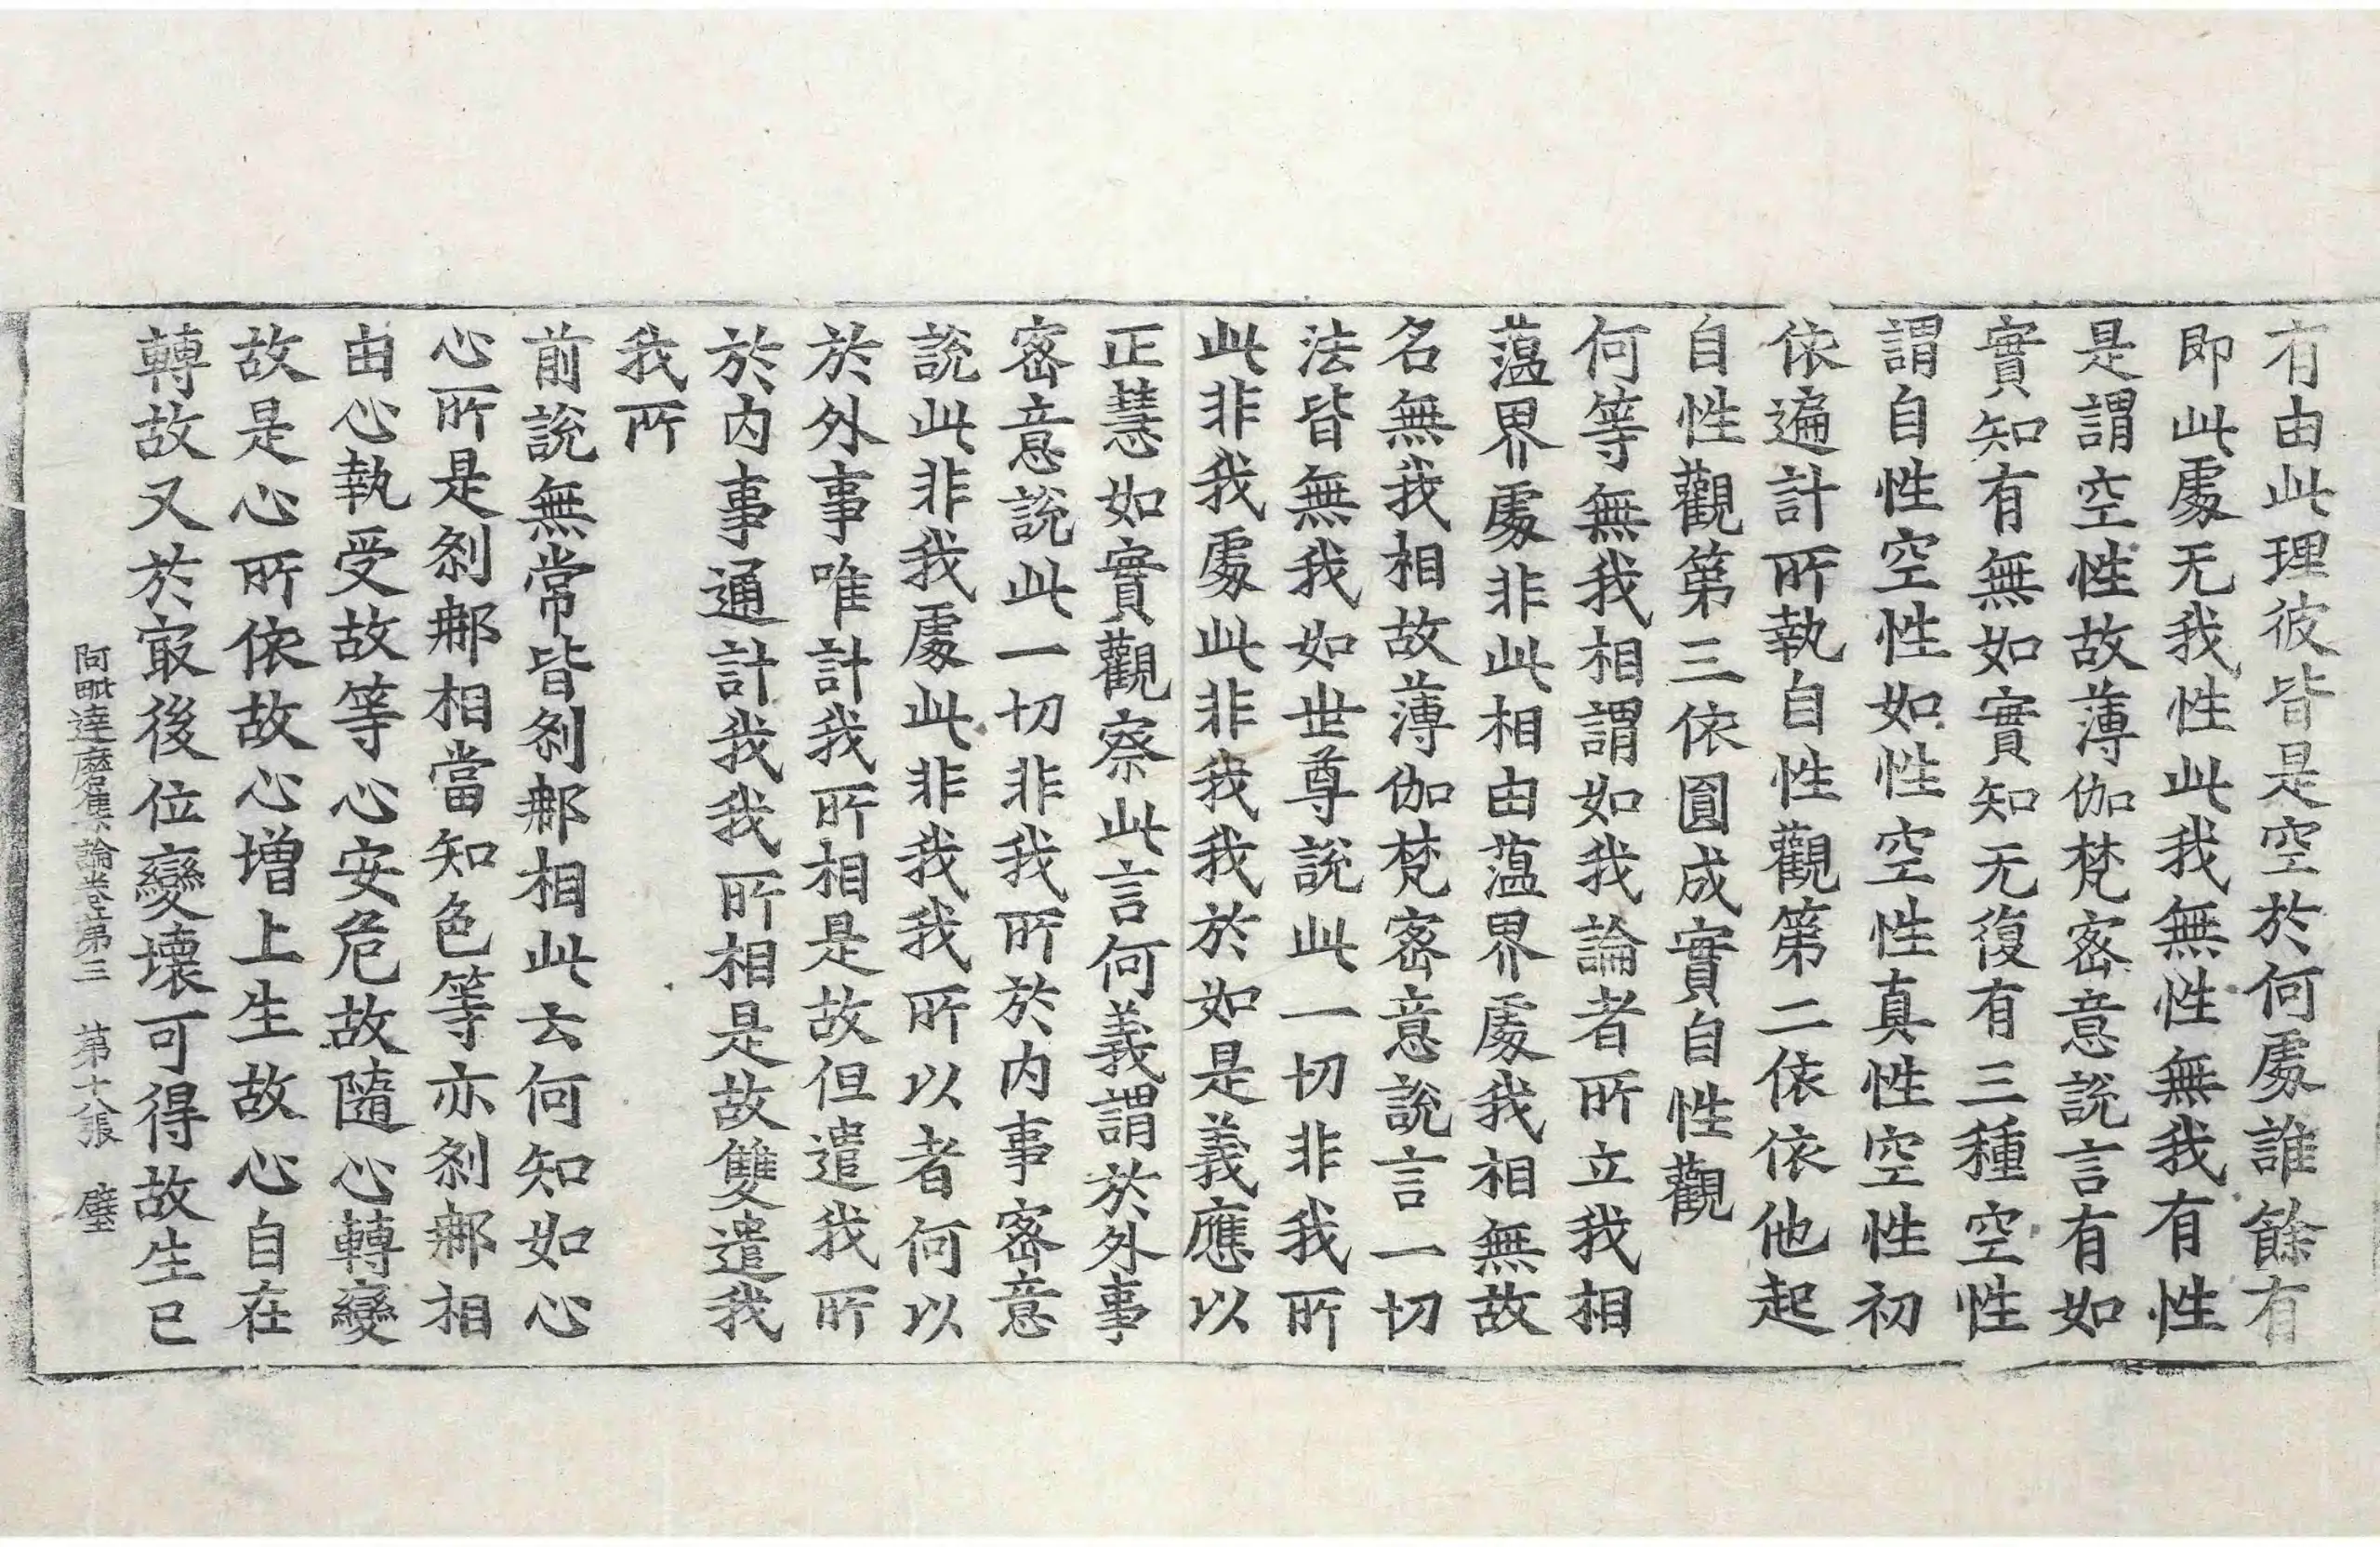 有由此理彼皆是空於何處誰餘有
即此處无我性此我無性無我有性
是謂空性故薄伽梵密意說言有如
實知有無如實知无復有三種空性
謂自性空性如性空性真性空性初
依遍計所執自性觀第二依依他起
自性觀第三依圓成實自性觀
何等無我相謂如我論者所立我相
蕰界處非此相由蕰界處我相無故
名無我相故薄伽梵密意說言一切
法皆無我如世尊說此一切非我所
此非我處此非我我於如是義應以
正慧如實觀察此言何義謂於外事
密意說此一切非我所於内事密意
說此非我處此非我我所以者何以
於外事唯計我所相是故但遣我所
於内事通計我我所相是故雙遣我
我所
前說無常皆刹那相此云何知如心
心所是刹那相當知色等亦刹那相
由心執受故等心安危故隨心轉變
故是心所依故心增上生故心自在
轉故又於㝡後位變壞可得故生已
阿毗達磨集論卷第三　第十八張　璧